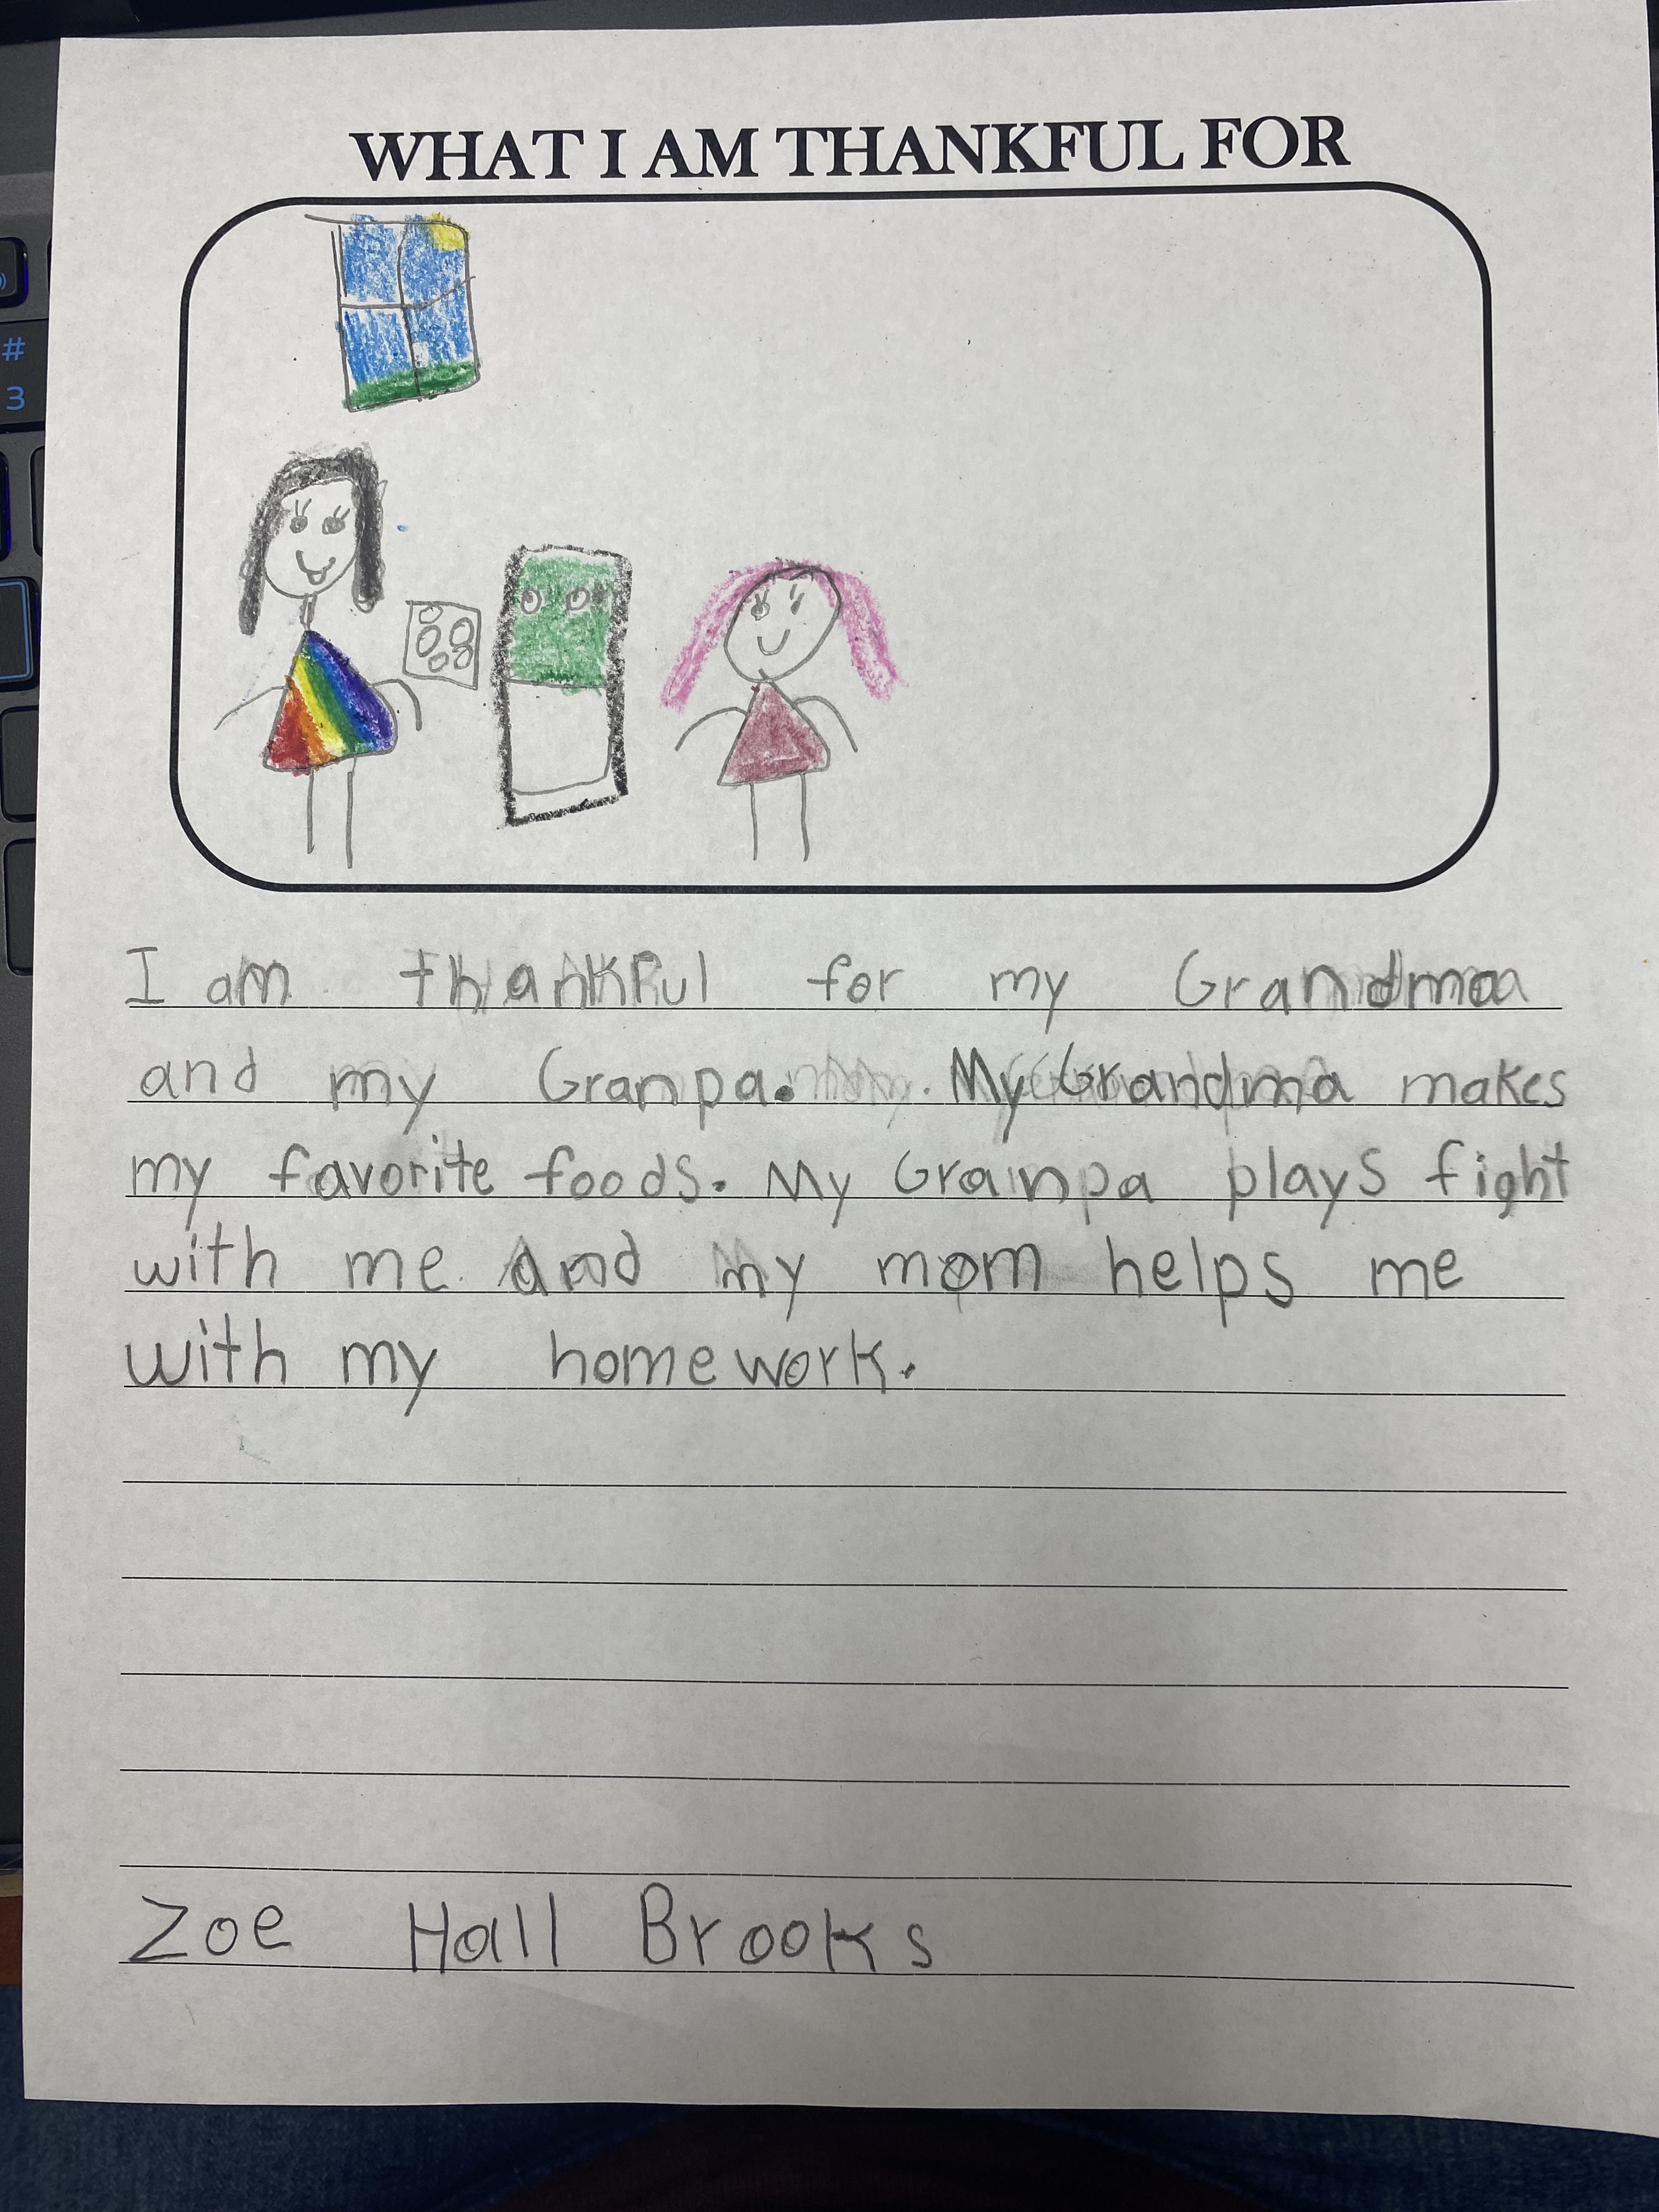 WHAT I AM THANKFUL FOR
I am thankful for my Grandma
and my Granpa. My Grandma makes
my favorite foods. My Granpa plays fight
with me and my mom helps me
with my homework.
Zoe Hall Brooks
#
3